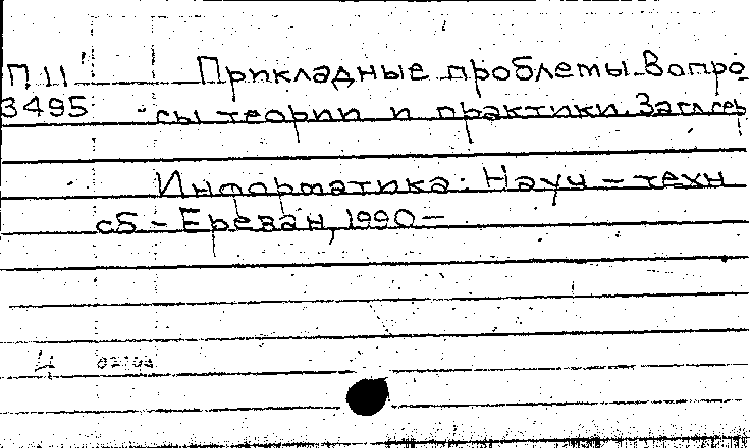 П 11 Прикладные проблемы. Вопро
3495 сы теории и практики. Загл. сер.
Информатика: Науч-техн
сб - Ереван, 1990-